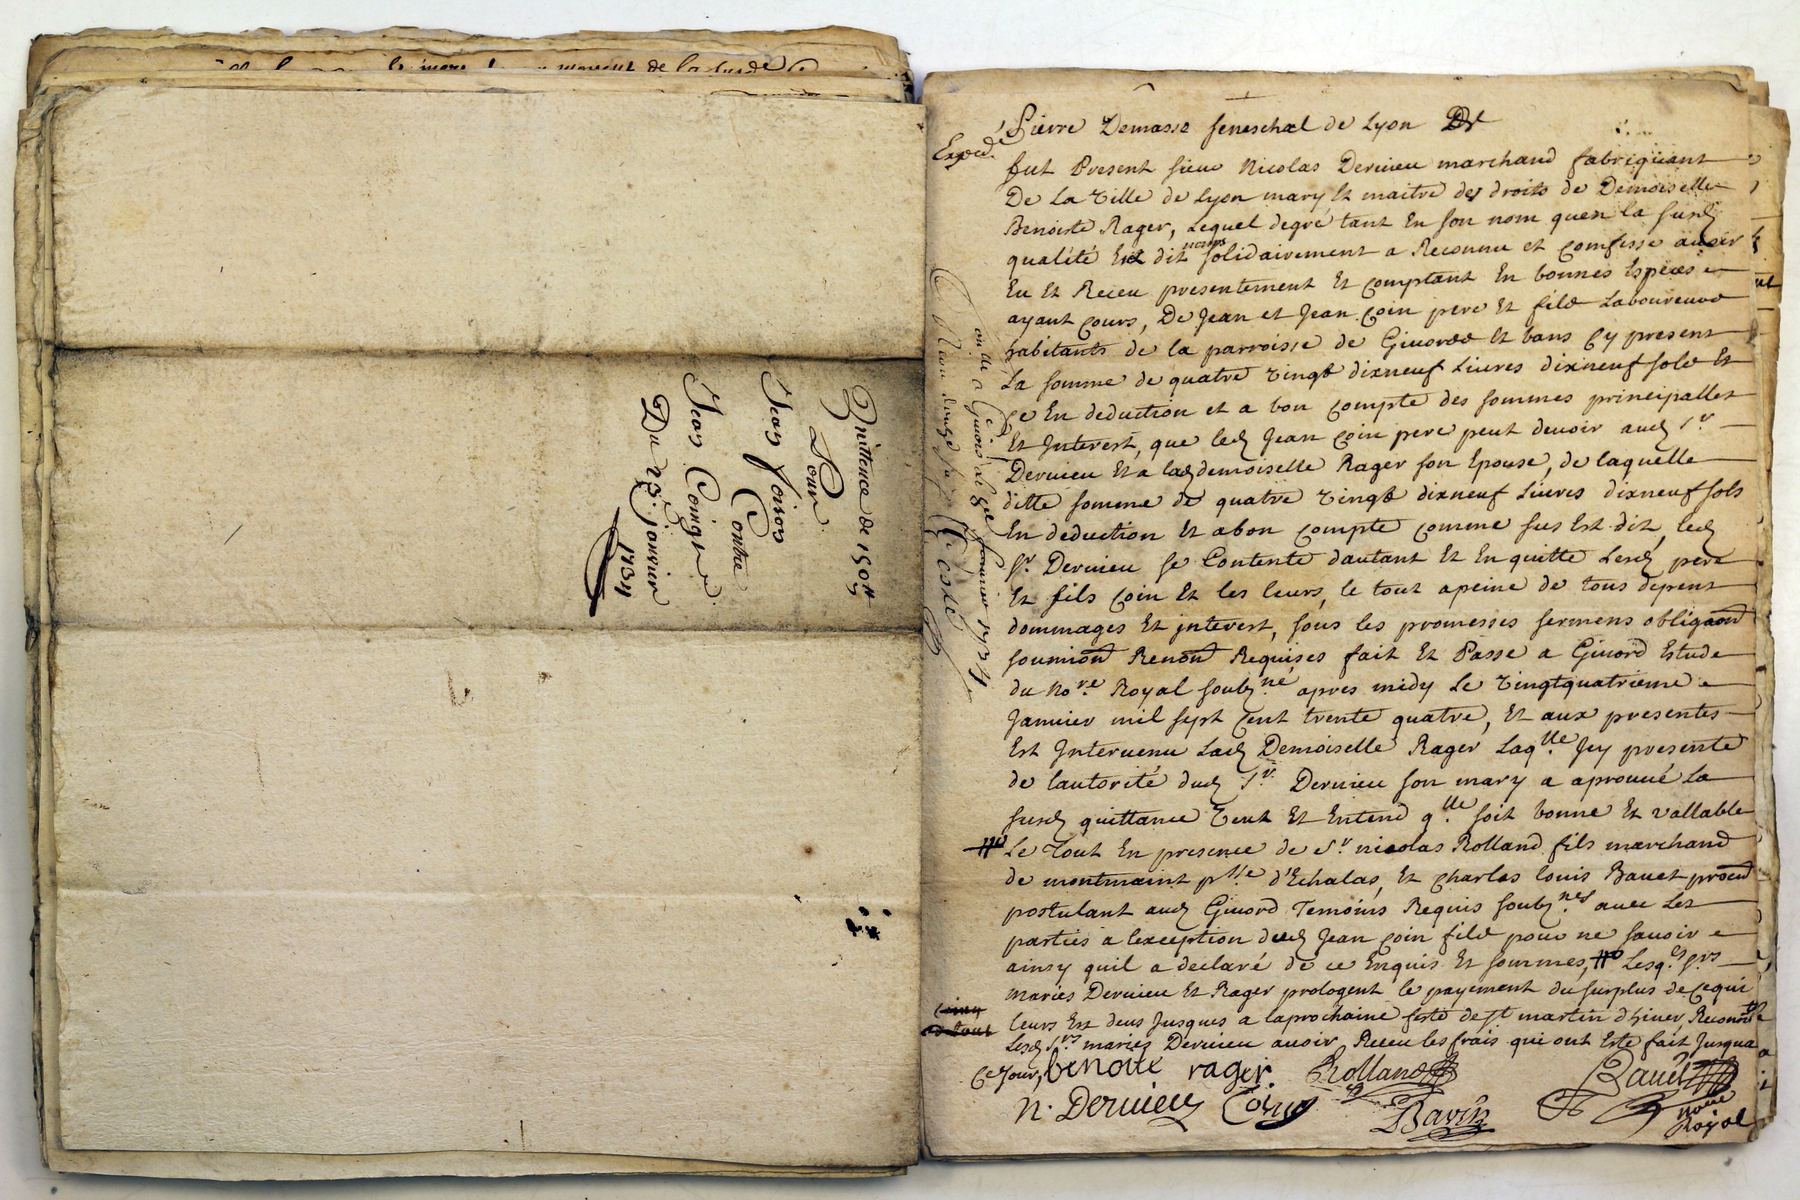 Quittence de 150#
Pour
Jean
Contre
Jean
Du 23 janvier
1734
Pierre Demasso seneschal de Lyon
fut Present sieur Nicolas Dervieu marchand fabriquant
De La Ville de Lyon mary Et maitre des droits de Demoiselle
Benoiste Rager, Lequel degré tant En son nom quen la susd
qualité dit solidairement a Reconnu et confesse avoir
Eu Et Receu presentement Et Comptant En bonnes Especes
ayant Cours, De Jean et Jean Coin pere Et fils Laboureurs
habitants de la parroisse de Givors Et bans Cy present
La somme de quatre vingt dixneuf Livres dixneuf sols Et
Ce En deduction et a bon Compte des sommes principalles
Et Interest, que led Jean Coin pere peut devoir aud Sr
Dervieu Et a lad demoiselle Rager son Epouse, de laquelle
ditte somme de quatre vingt dixneuf Livres dixneuf sols
En deduction Et abon Compte Comme sus Est dit, led
Sr Dervieu se Contente dautant Et En quitte Lesd pere
Et fils Coin Et les leurs, le tout apeine de tous depent
dommages Et interest, sous les promesses sermens obligaon
soumion Renon Requises fait Et Passe a Givord Estude
du Nore Royal soubzné, apres midy Le vingtquatrieme
Janvier mil sept Cent trente quatre, Et aux presentes
Est Intervenu Lad Demoiselle Rager Laqlle Icy presente
de lautorité dud Sr Dervieu son mary a aprouvé La
susd quittance Veut Et Entend qlle soit bonne Et vallable
Le Tout En presence de Sr nicolas Rolland fils marchand
de montmaint psse d'Echalas, Et Charles louis Bavet procu
postulant aud Givord Temoins Requis soubznes avec Les
parties a lexception dud Jean Coin fils pour ne savoir
ainsy quil a declaré de ce Enquis Et sommes, Lesqes Srs
mariés Dervieu Et Rager prologent le payement du surplus de Cequi
leurs Est deus Jusques a laprochaine feste de st martin dhiver,
Lesd Srs mariés Dervieu avoir Receu les frais qui ont Esté fait Jusqua
Ce Jour,
benoite rager. Rolland
n. Dervieu Coin
Royal